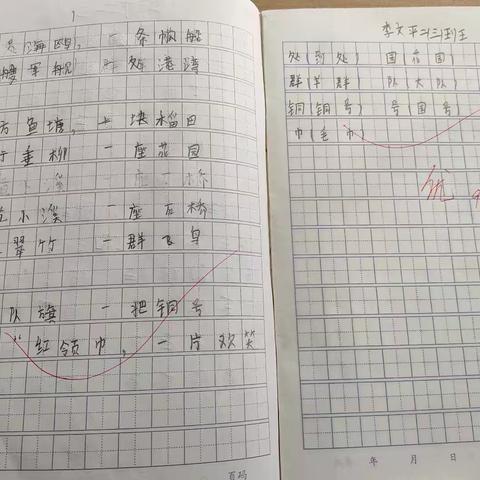 1
海鸥, 一条帆船
艘军舰 一处港湾
方鱼塘, 一块田
行垂柳 一座花园
小溪 一座石桥
小溪 一座石桥
翠竹 一群飞鸟
队旗 一把铜号
“红领巾, 一片欢笑
页码
李文平 二(三)班
处(到处) 园(花园)
群(羊群) 队(大队)
铜(铜号) 号(国号)
巾(毛巾)
优
年 月 日